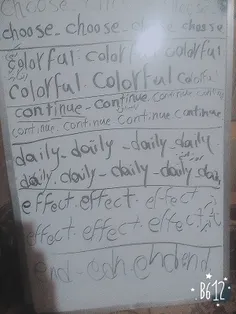 choose - choose
choose - choose - choose choose
colorful. colorful. colorful. colorful
colorful. colorful colorful
continue - continue. continue continue
continue. continue continue continue
daily - daily - daily - daily
daily. daily - daily - daily daily
effect. effect. effect. effect
effect. effect. effect. effect
end - end end end
B612